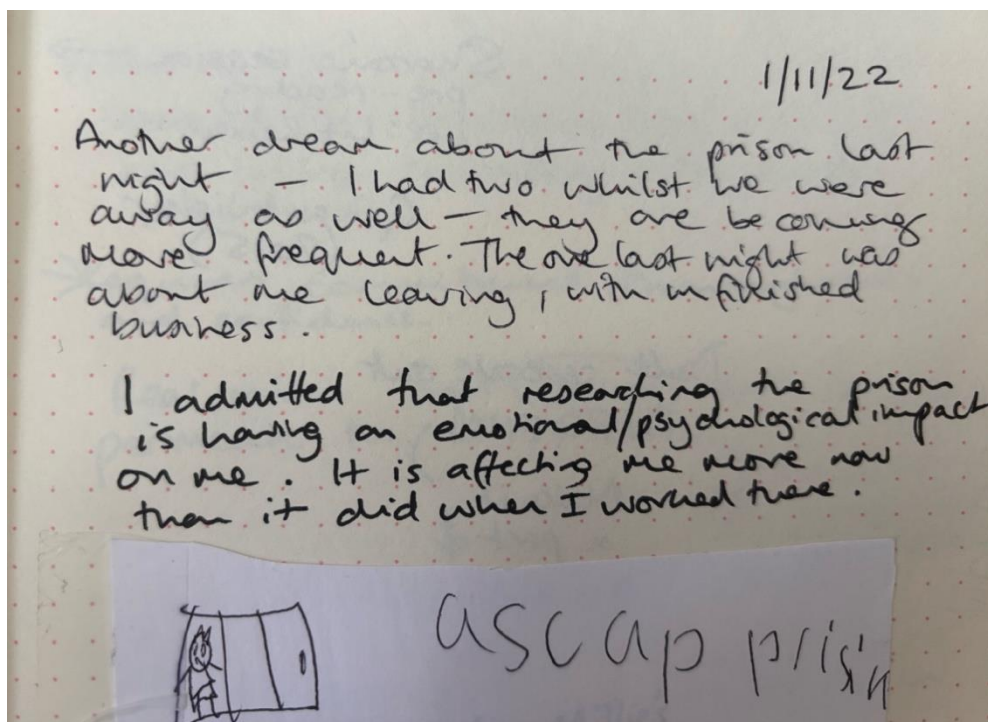 1/11/22
Another dream about the prison last
night – I had two whilst we were
away as well – they are becoming
more frequent. The one last night was
about me leaving, with unfinished
business.
I admitted that researching the prison
is having an emotional/psychological impact
on me. It is affecting me more now
than it did when I worked there.
ascap prisin